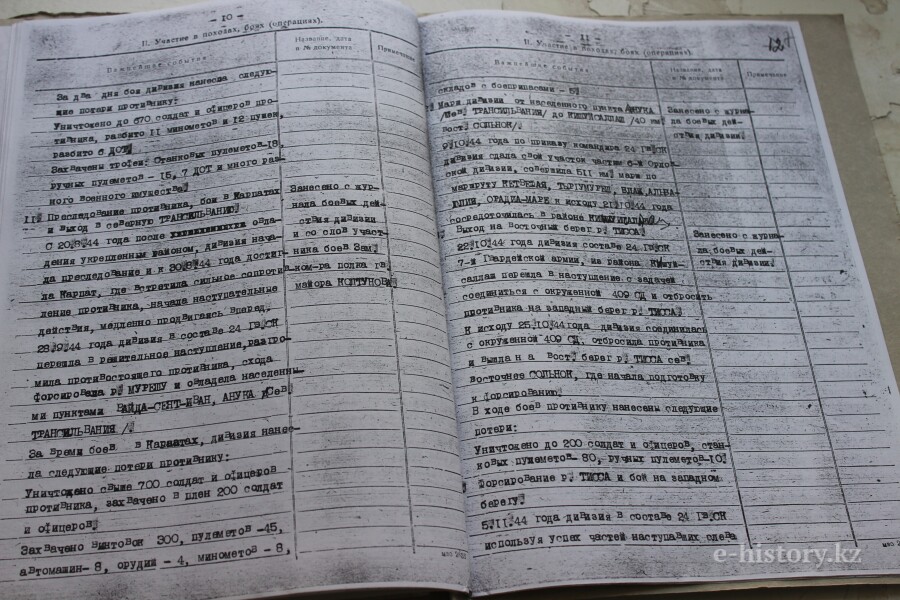 - 10 -
II. Участие в походах, боях (операциях).
Важнейшие события
Название, дата
и № документа
Примечание
За два дни боя дивизия нанесла следую-
щие потери противнику:
Уничтожено до 670 солдат и офицеров про-
тивника, разбито II минометов и I2 пушек,
разбито 6 ДОТ.
Захвачены трофеи: Станковых пулеметов-I8,
ручных пулеметов - I5, 7 ДОТ и много раз-
ного военного имущества.
II. Преследование противника, бои в Карпатах
и выход в северную ТРАНСИЛЬВАНИЮ.
С 20.8.44 года после овла-
дения укрепленным районом, дивизия нача-
ла преследование и к 30.8.44 года достиг-
ла Карпат, где встретила сильное сопротив-
ление противника, начала наступательные
действия, медленно продвигаясь вперед.
28.9.44 года дивизия в составе 24 ГВ.СК
перешла в решительное наступление, разгро-
мила противостоящего противника, сходу
форсировала р. МУРЕШУ и овладела населенны-
ми пунктами ВАЙДА-СЕНТ-ИВАН, АНУКА /Сев.
ТРАНСИЛЬВАНИЯ /.
За время боев в Карпатах, дивизия нанес-
ла следующие потери противнику:
Уничтожено свыше 700 солдат и офицеров
противника, захвачено в плен 200 солдат
и офицеров.
Захвачено винтовок 300, пулеметов -45,
автомашин- 8, орудия - 4, минометов - 8,
Занесено с жур-
нала боевых дей-
ствия дивизии
и со слов участ-
ника боев Зам.
ком-ра полка гв.
майора КОЛТУНОВА
- 11 -
127
II. Участие в походах, боях (операциях).
Важнейшие события
Название, дата
и № документа
Примечание
складов с боеприпасами - 5.
Марш дивизии от населенного пункта АНУКА
/Сев. ТРАНСИЛЬВАНИЯ/ до КИШУЙСАЛЛАШ /40 км.
Вост. СОЛЬНОК/.
9.10.44 года по приказу командира 24 ГВ.СК
дивизия сдала свой участок частям 6-й
ской дивизии, совершила 5II км. марш по
маршруту
ЮЛИЯ, ОРАДИА-МАРЕ к исходу 21.10.44 года
сосредоточилась в районе
Выход на Восточный берег р. ТИССА.
22.10.44 года дивизия составе 24 ГВ.СК
7-й Гвардейской армии, из района КИШУЙ-
САЛЛАШ перешла в наступление с задачей
соединиться с окруженной 409 СД и отбросить
противника на западный берег р. ТИССА.
К исходу 25.10.44года дивизия соединилась
с окруженной 409 СД, отбросила противника
и вышла на Вост. берег р. ТИССА сев.
восточнее СОЛЬНОК, где начала подготовку
к форсированию.
В ходе боев противнику нанесены следующие
потери:
Уничтожено до 200 солдат и офицеров, стан-
ковых пулеметов- 80, ручных пулеметов-IO.
Форсирование р. ТИССА и бой на западном
берегу.
5.II.44 года дивизия в составе 24 ГВ.СК
используя успех частей наступавших слева
Занесено с журна-
ла боевых дей-
ствия дивизии.
Занесено с журна-
ла боевых дей-
ствия дивизии.
e-history.kz